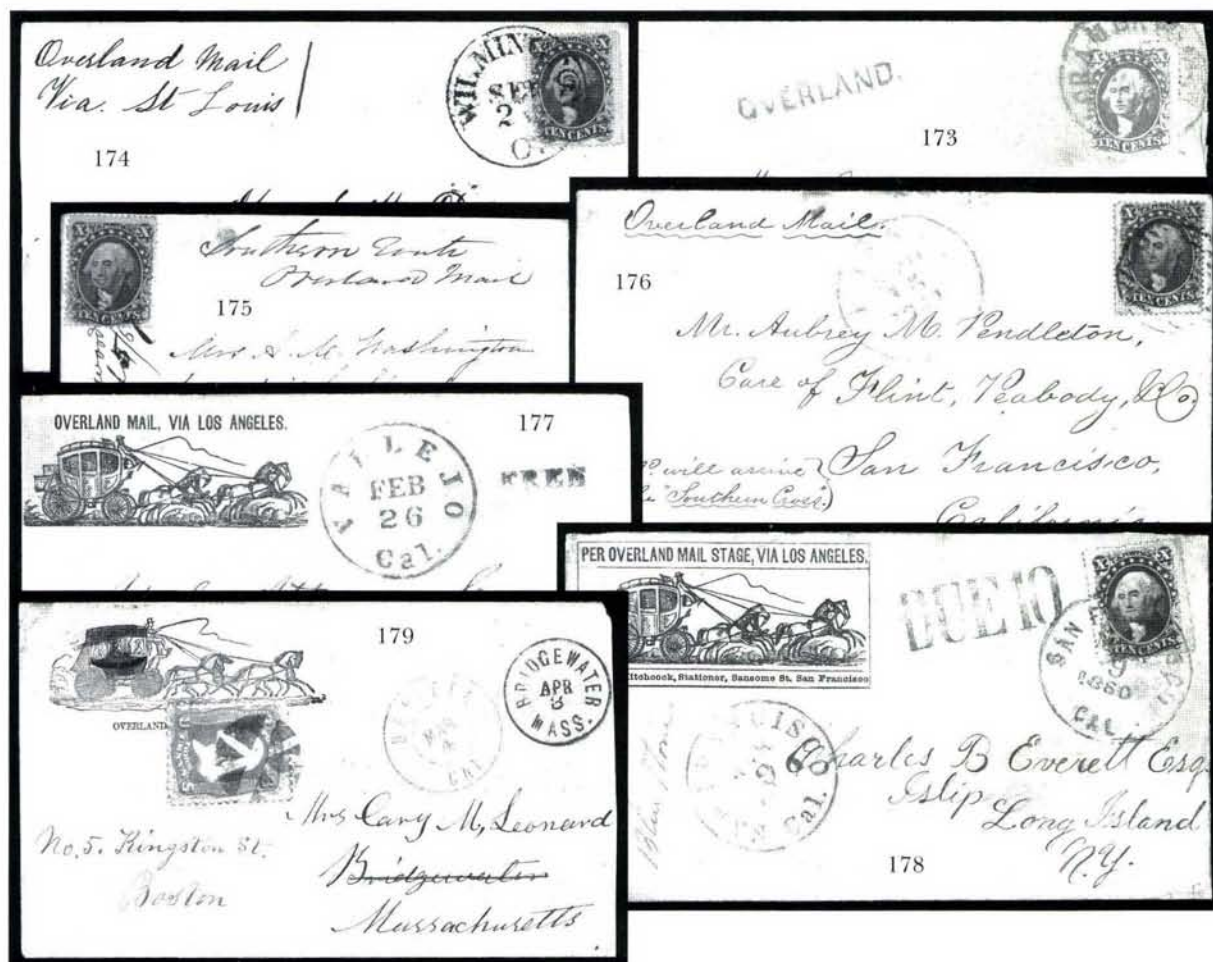 Overland Mail
Via. St Louis
174
WILMIN
SEP
2
O.
TEN CENTS
OVERLAND.
173
TEN CENTS
Southern Route
Overland Mail
175
Mrs A. M. Washington
TEN CENTS
Overland Mail.
176
TEN CENTS
Mr. Aubrey M. Pendleton,
Care of Flint, Peabody, &Co.
will arrive San Francisco,
"Southern Cross".)
California
OVERLAND MAIL, VIA LOS ANGELES.
177
VALLEJO
FEB
26
Cal.
FREE
PER OVERLAND MAIL STAGE, VIA LOS ANGELES.
itchcock, Stationer, Sansome St. San Francisco
DUE 10
TEN CENTS
SAN
9
1860
CAL.
Cal.
Charles B Everett Esq.
Islip
Long Island
N.Y.
178
179
OVERLAND.
BRIDGEWATER
APR
8
MASS.
Mrs Cary M, Leonard
Bridgewater
Massachusetts
No. 5. Kingston St.
Boston